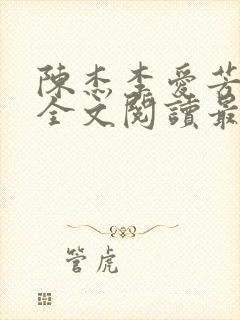 陳杰李愛芳
全文閱讀最
管虎